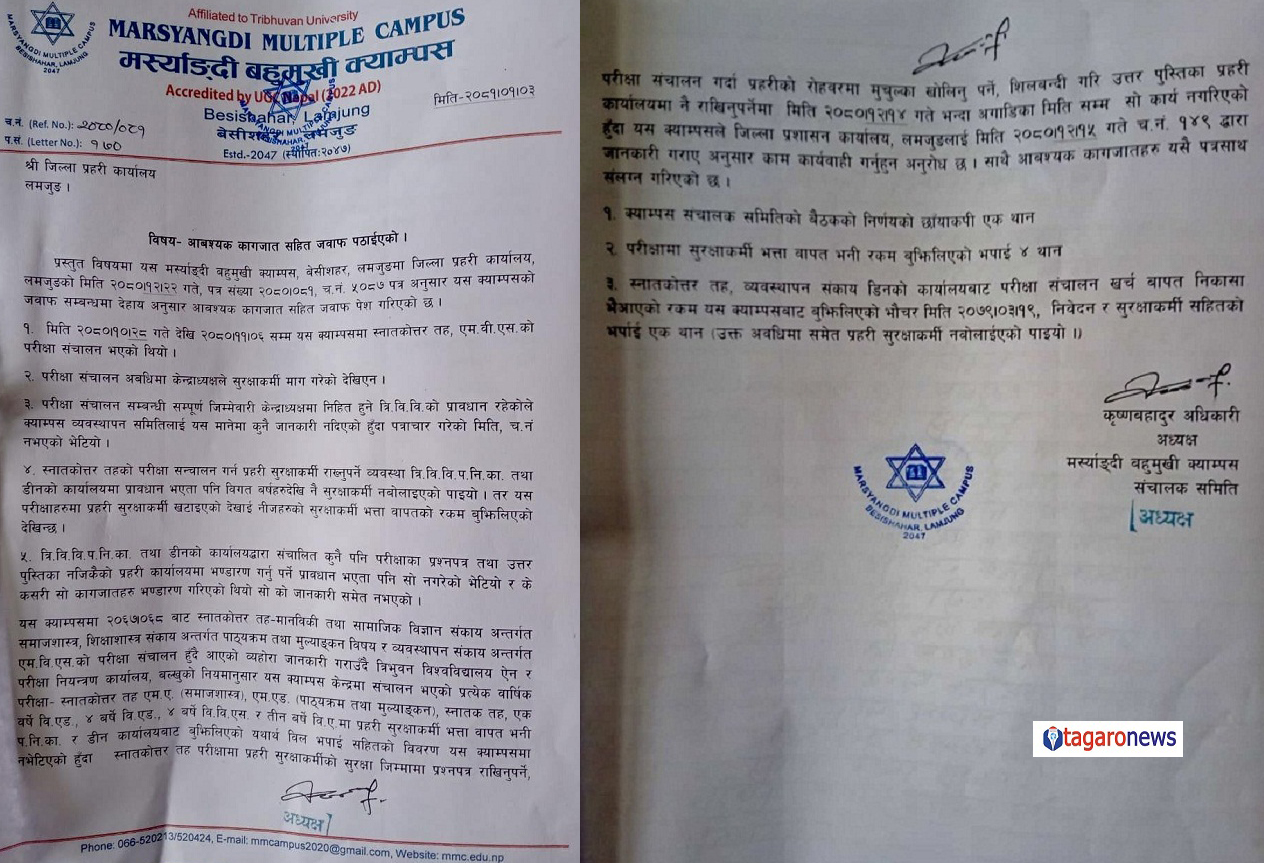 Affiliated to Tribhuvan University
MARSYANGDI MULTIPLE CAMPUS
मर्स्याङ्दी बहुमुखी क्याम्पस
Accredited by UGC Nepal (2022 AD)
Besishahar, Lamjung
बेसीशहर, लमजुङ
Estd.-2047 (स्थापित:२०४७)
MARSYANGDI MULTIPLE CAMPUS
BESISHAHAR, LAMJUNG
2047
मिति-२०८१।०१।०३
च.नं. (Ref. No.): २०८०/०८१
प.सं. (Letter No.): १७०
श्री जिल्ला प्रहरी कार्यालय
लमजुङ ।
विषय- आबश्यक कागजात सहित जवाफ पठाईएको ।
प्रस्तुत विषयमा यस मर्स्याङ्दी बहुमुखी क्याम्पस, बेसीशहर, लमजुङमा जिल्ला प्रहरी कार्यालय,
लमजुङको मिति २०८०।१२।२२ गते, पत्र संख्या २०८०।०८१, च.नं. ५०८७ पत्र अनुसार यस क्याम्पसको
जवाफ सम्बन्धमा देहाय अनुसार आवश्यक कागजात सहित जवाफ पेश गरिएको छ ।
१. मिति २०८०।१०।२८ गते देखि २०८०।११।०६ सम्म यस क्याम्पसमा स्नातकोत्तर तह, एम.वी.एस.को
परीक्षा संचालन भएको थियो ।
२. परीक्षा संचालन अबधिमा केन्द्राध्यक्षले सुरक्षाकर्मी माग गरेको देखिएन ।
३. परीक्षा संचालन सम्बन्धी सम्पूर्ण जिम्मेवारी केन्द्राध्यक्षमा निहित हुने त्रि.वि.वि.को प्रावधान रहेकोले
क्याम्पस व्यवस्थापन समितिलाई यस मानेमा कुनै जानकारी नदिएको हुँदा पत्राचार गरेको मिति, च.नं
नभएको भेटियो ।
४. स्नातकोत्तर तहको परीक्षा सन्चालन गर्न प्रहरी सुरक्षाकर्मी राख्नुपर्ने व्यवस्था त्रि.वि.वि.प.नि.का. तथा
डीनको कार्यालयमा प्रावधान भएता पनि विगत बर्षहरुदेखि नै सुरक्षाकर्मी नबोलाइएको पाइयो । तर यस
परीक्षाहरुमा प्रहरी सुरक्षाकर्मी खटाइएको देखाई नीजहरुको सुरक्षाकर्मी भत्ता वापतको रकम बुझिलिएको
देखिन्छ ।
५. त्रि.वि.वि.प.नि.का. तथा डीनको कार्यालयद्धारा संचालित कुनै पनि परीक्षाका प्रश्नपत्र तथा उत्तर
पुस्तिका नजिकैको प्रहरी कार्यालयमा भण्डारण गर्नु पर्ने प्रावधान भएता पनि सो नगरेको भेटियो र के
कसरी सो कागजातहरु भण्डारण गरिएको थियो सो को जानकारी समेत नभएको ।
यस क्याम्पसमा २०६७।०६८ बाट स्नातकोत्तर तह-मानविकी तथा सामाजिक विज्ञान संकाय अन्तर्गत
समाजशास्त्र, शिक्षाशास्त्र संकाय अन्तर्गत पाठ्यक्रम तथा मुल्याङ्कन विषय र व्यवस्थापन संकाय अन्तर्गत
एम.वि.एस.को परीक्षा संचालन हुँदै आएको व्यहोरा जानकारी गराउँदै त्रिभुवन विश्वविद्यालय ऐन र
परीक्षा नियन्त्रण कार्यालय, बल्खुको नियमानुसार यस क्याम्पस केन्द्रमा संचालन भएको प्रत्येक वार्षिक
परीक्षा- स्नातकोत्तर तह एम.ए. (समाजशास्त्र), एम.एड. (पाठ्यक्रम तथा मुल्याङ्कन), स्नातक तह, एक
वर्षे वि.एड., ४ बर्षे वि.एड., ४ बर्षे वि.वि.एस. र तीन बर्षे वि.ए.मा प्रहरी सुरक्षाकर्मी भत्ता वापत भनी
प.नि.का. र डीन कार्यालयबाट बुझिलिएको यथार्थ विल भपाई सहितको विवरण यस क्याम्पसमा
नभेटिएको हुँदा स्नातकोत्तर तह परीक्षामा प्रहरी सुरक्षाकर्मीको सुरक्षा जिम्मामा प्रश्नपत्र राखिनुपर्ने,
अध्यक्ष
Phone: 066-520213/520424, E-mail: mmcampus2020@gmail.com, Website: mmc.edu.np
परीक्षा संचालन गर्दा प्रहरीको रोहबरमा मुचुल्का खोलिनु पर्ने, शिलबन्दी गरि उत्तर पुस्तिका प्रहरी
कार्यालयमा नै राखिनुपर्नेमा मिति २०८०।१२।१४ गते भन्दा अगाडिका मिति सम्म सो कार्य नगरिएको
हुँदा यस क्याम्पसले जिल्ला प्रशासन कार्यालय, लमजुङलाई मिति २०८०।१२।१५ गते च.नं. १४९ द्वारा
जानकारी गराए अनुसार काम कार्यवाही गर्नुहुन अनुरोध छ । साथै आबश्यक कागजातहरु यसै पत्रसाथ
संलग्न गरिएको छ ।
१. क्याम्पस संचालक समितिको बैठकको निर्णयको छाँयाकपी एक थान
२. परीक्षामा सुरक्षाकर्मी भत्ता वापत भनी रकम बुझिलिएको भपाई ४ थान
३. स्नातकोत्तर तह, व्यवस्थापन संकाय डिनको कार्यालयबाट परीक्षा संचालन खर्च बापत निकासा
भैआएको रकम यस क्याम्पसबाट बुझिलिएको भौचर मिति २०७९।०३।१९, निवेदन र सुरक्षाकर्मी सहितको
भर्पाई एक थान (उक्त अवधिमा समेत प्रहरी सुरक्षाकर्मी नबोलाईएको पाइयो ।)
कृष्णबहादुर अधिकारी
अध्यक्ष
मर्स्याङ्दी बहुमुखी क्याम्पस
संचालक समिति
अध्यक्ष
MARSYANGDI MULTIPLE CAMPUS
BESISHAHAR, LAMJUNG
2047
tagaronews